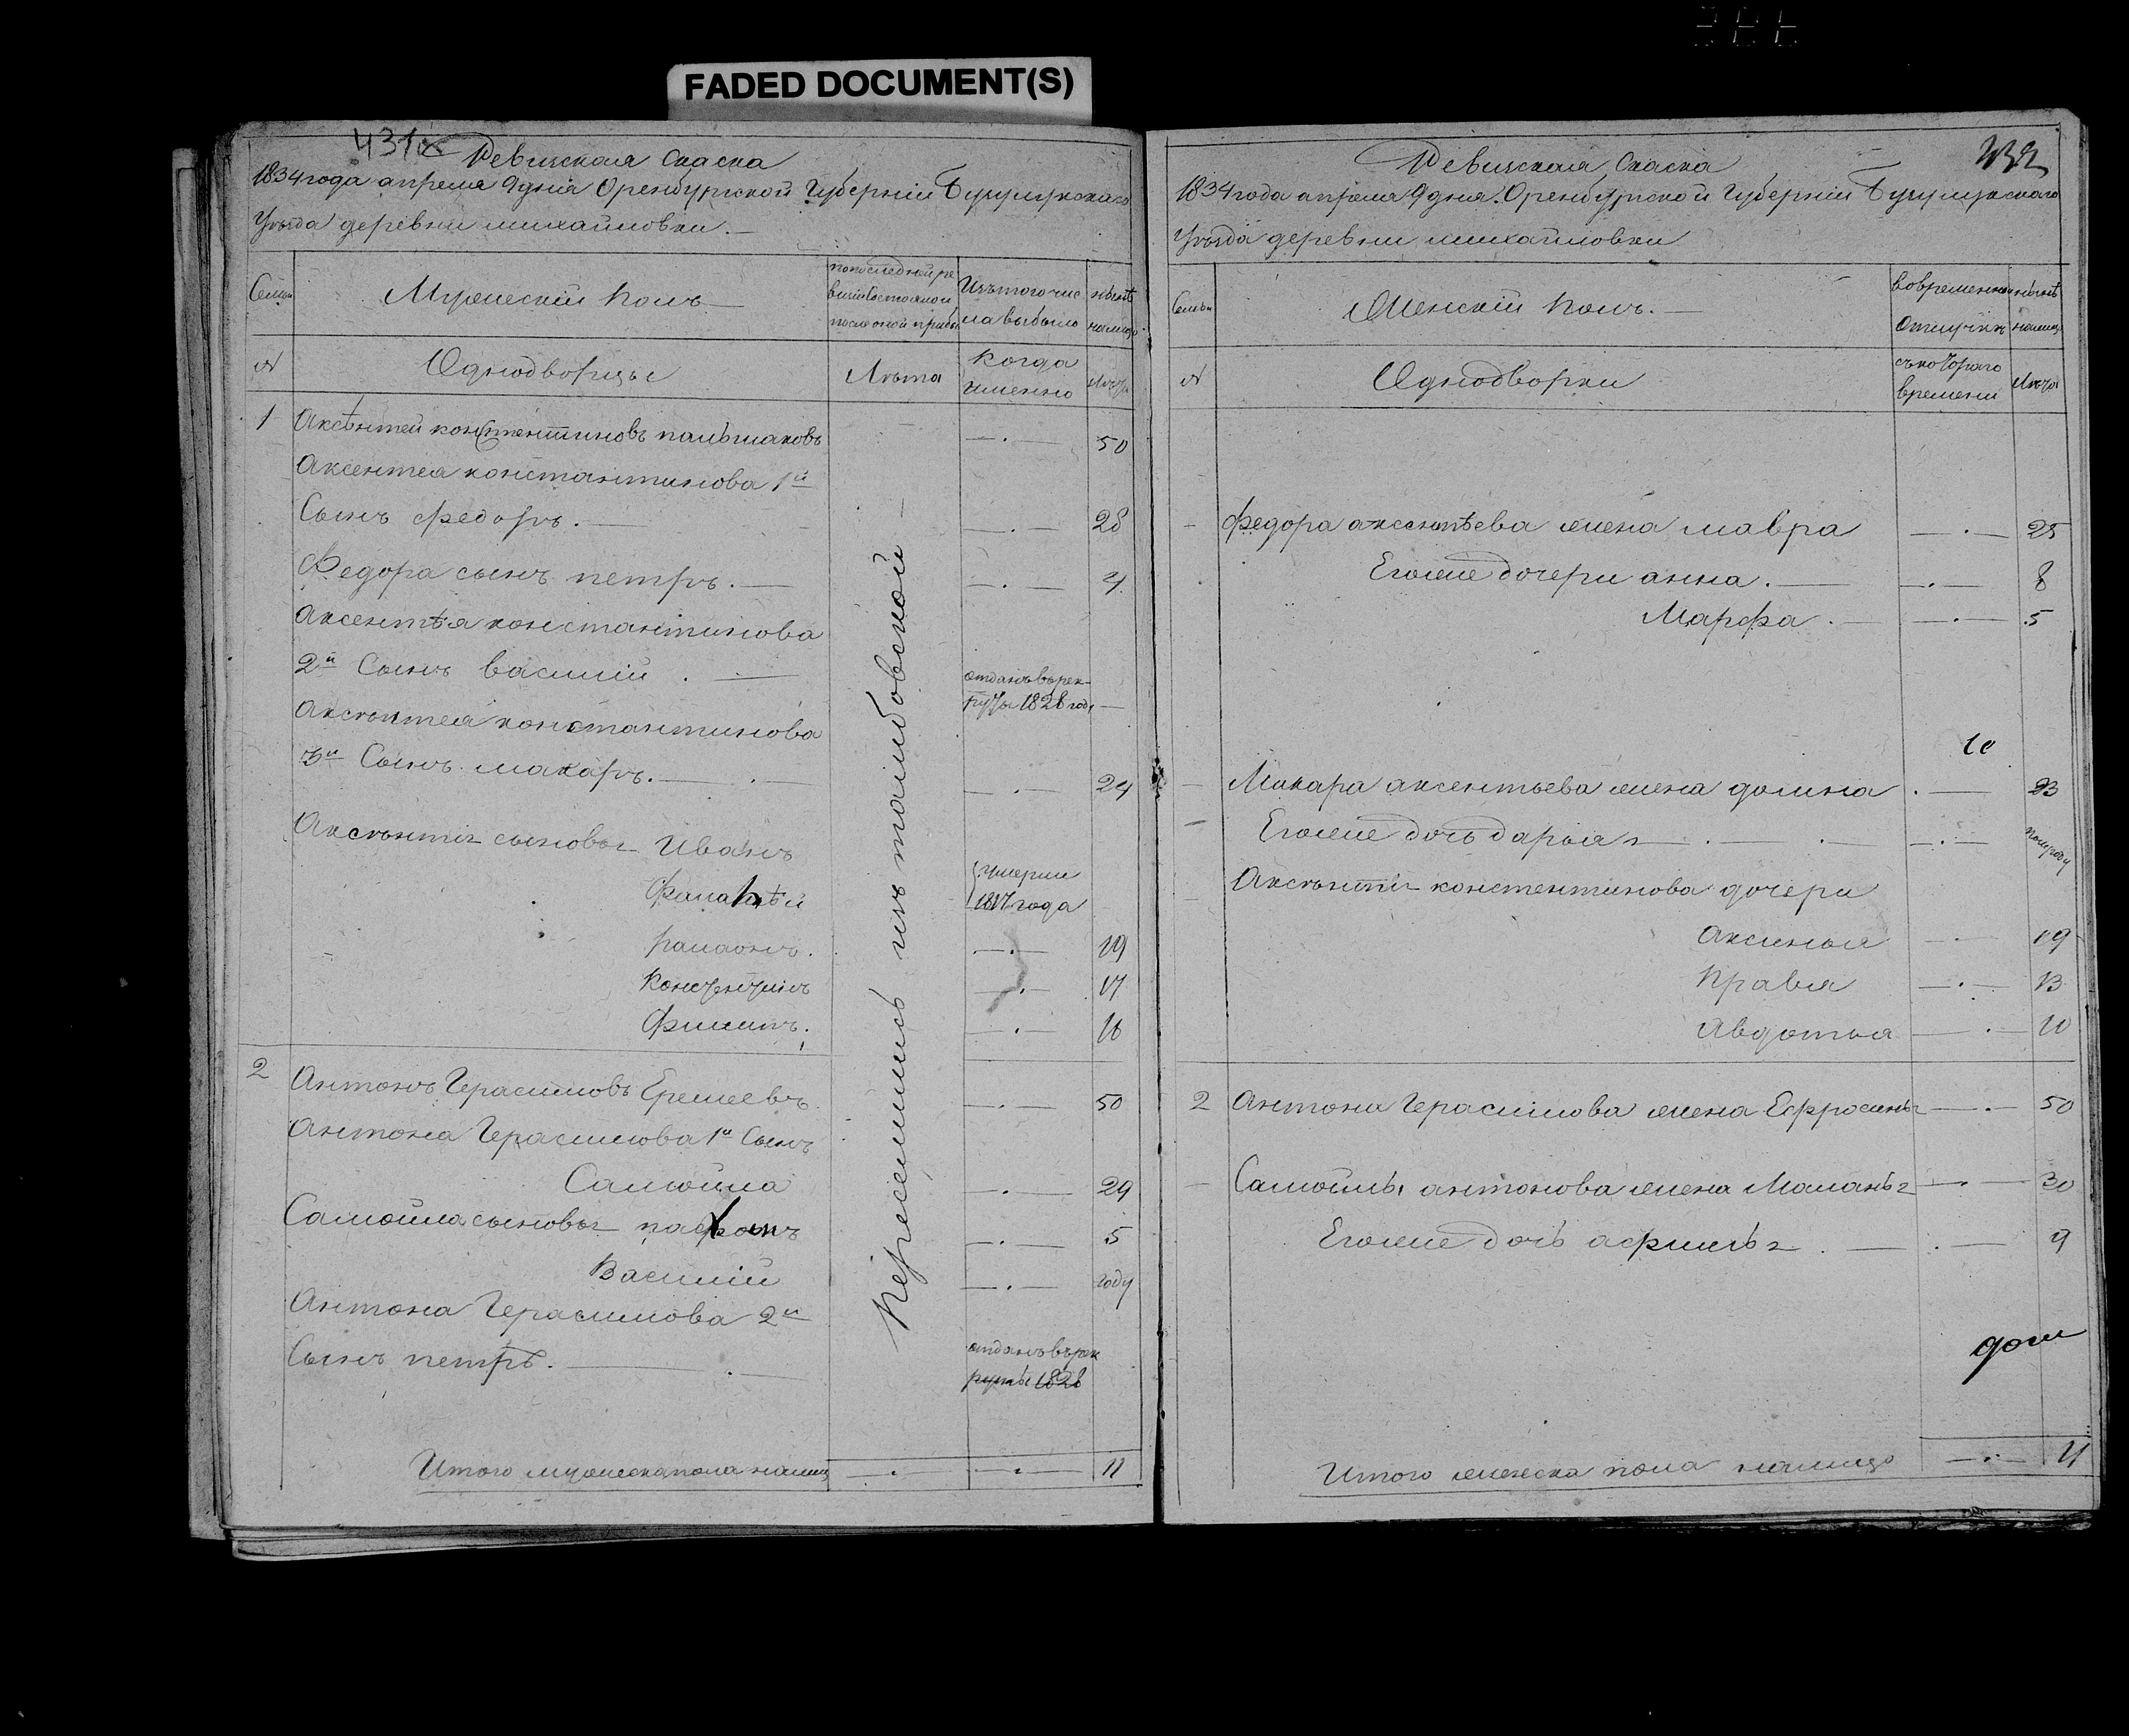 FADED DOCUMENT(S)
431
Ревизская Скаска
1834 года апреля 9 дня Оренбургской Губернии Бузулукскаго
Уезда деревни михайловки.
Семьи
Мужеский полъ
по последней ре
визии состояло и
после оной прибы
Изъ того чис
ла выбыло
ныне
налицо
№
Однодворцы
Лѣта
Когда
именно
Лѣта
1 Аксѣнтей констентиновъ 50
Аксентея константинова 1й
Сынъ федоръ. 28
Федора сынъ петръ. 4
Аксентѣя константинова
2й Сынъ василий. отданъ в рек-
руты 1828 году
Аксѣнтея константинова
3й Сынъ макаръ. 24
Аксѣнтiя сыновья Иванъ
умерли
1817 года
рамаонъ. 19
Констентинъ 17
Филипъ. 16
Переселились изъ тамбовской
2 Антонъ Герасимовъ Еремеевъ 50
Антона Герасимова 1й Сынъ
Самойла 29
Самойла сыновья 5
Василий году
Антона Герасимова 2й
Сынъ петръ. отданъ в рек
руты 1828
Итого мужеска пола налиц 11
432
Ревизская Скаска
1834 года апреля 9 дня. Оренбургской Губернии Бузулукскаго
Уезда деревни михайловки
Семьи
Женский полъ.
во временной
отлучкѣ
ныне
налиц
№
Однодворки
съ котораго
времени
Лѣта
Федора аксентьева жена мавра 25
Егоже дочери анна. 8
Марфа. 5
10
Макара аксентьева жена домна 23
Егоже дочь дарья полугоду
Аксѣнтiя констентинова дочери
Аксинья 19
13
Авдотья 10
2 Антона Герасимова жена Ефросинья 50
Самойлы антонова жена Маланья 30
Егоже дочь афимья 9
Итого женска пола налицо 11